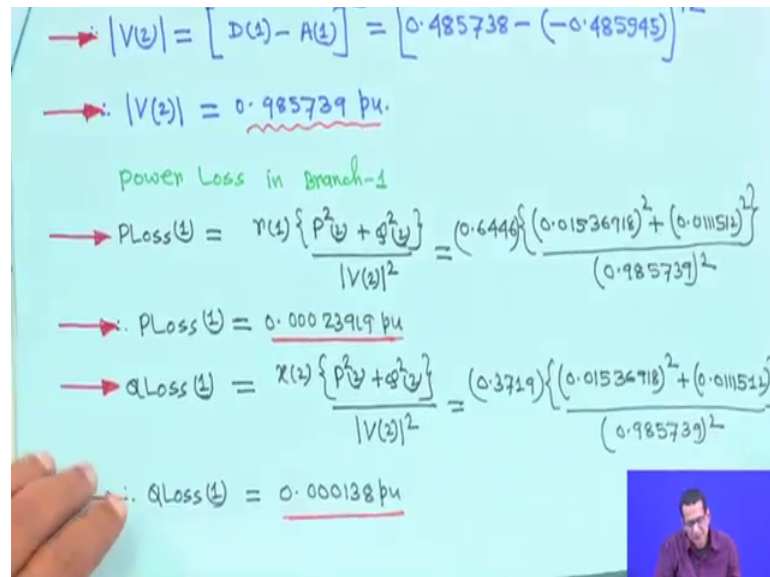 ∴ |V(2)| = [D(1) - A(1)]^1/2 = [0.485738 - (-0.485945)]^1/2
∴ |V(2)| = 0.985739 pu.
Power Loss in Branch-1
PLoss(1) = r(1){P²(2) + Q²(2)} / |V(2)|² = (0.6446){(0.01536918)² + (0.0111512)²} / (0.985739)²
∴ PLoss(1) = 0.00023919 pu
QLoss(1) = x(2){P²(2) + Q²(2)} / |V(2)|² = (0.3719){(0.01536918)² + (0.0111512)² / (0.985739)²
∴ QLoss(1) = 0.000138 pu